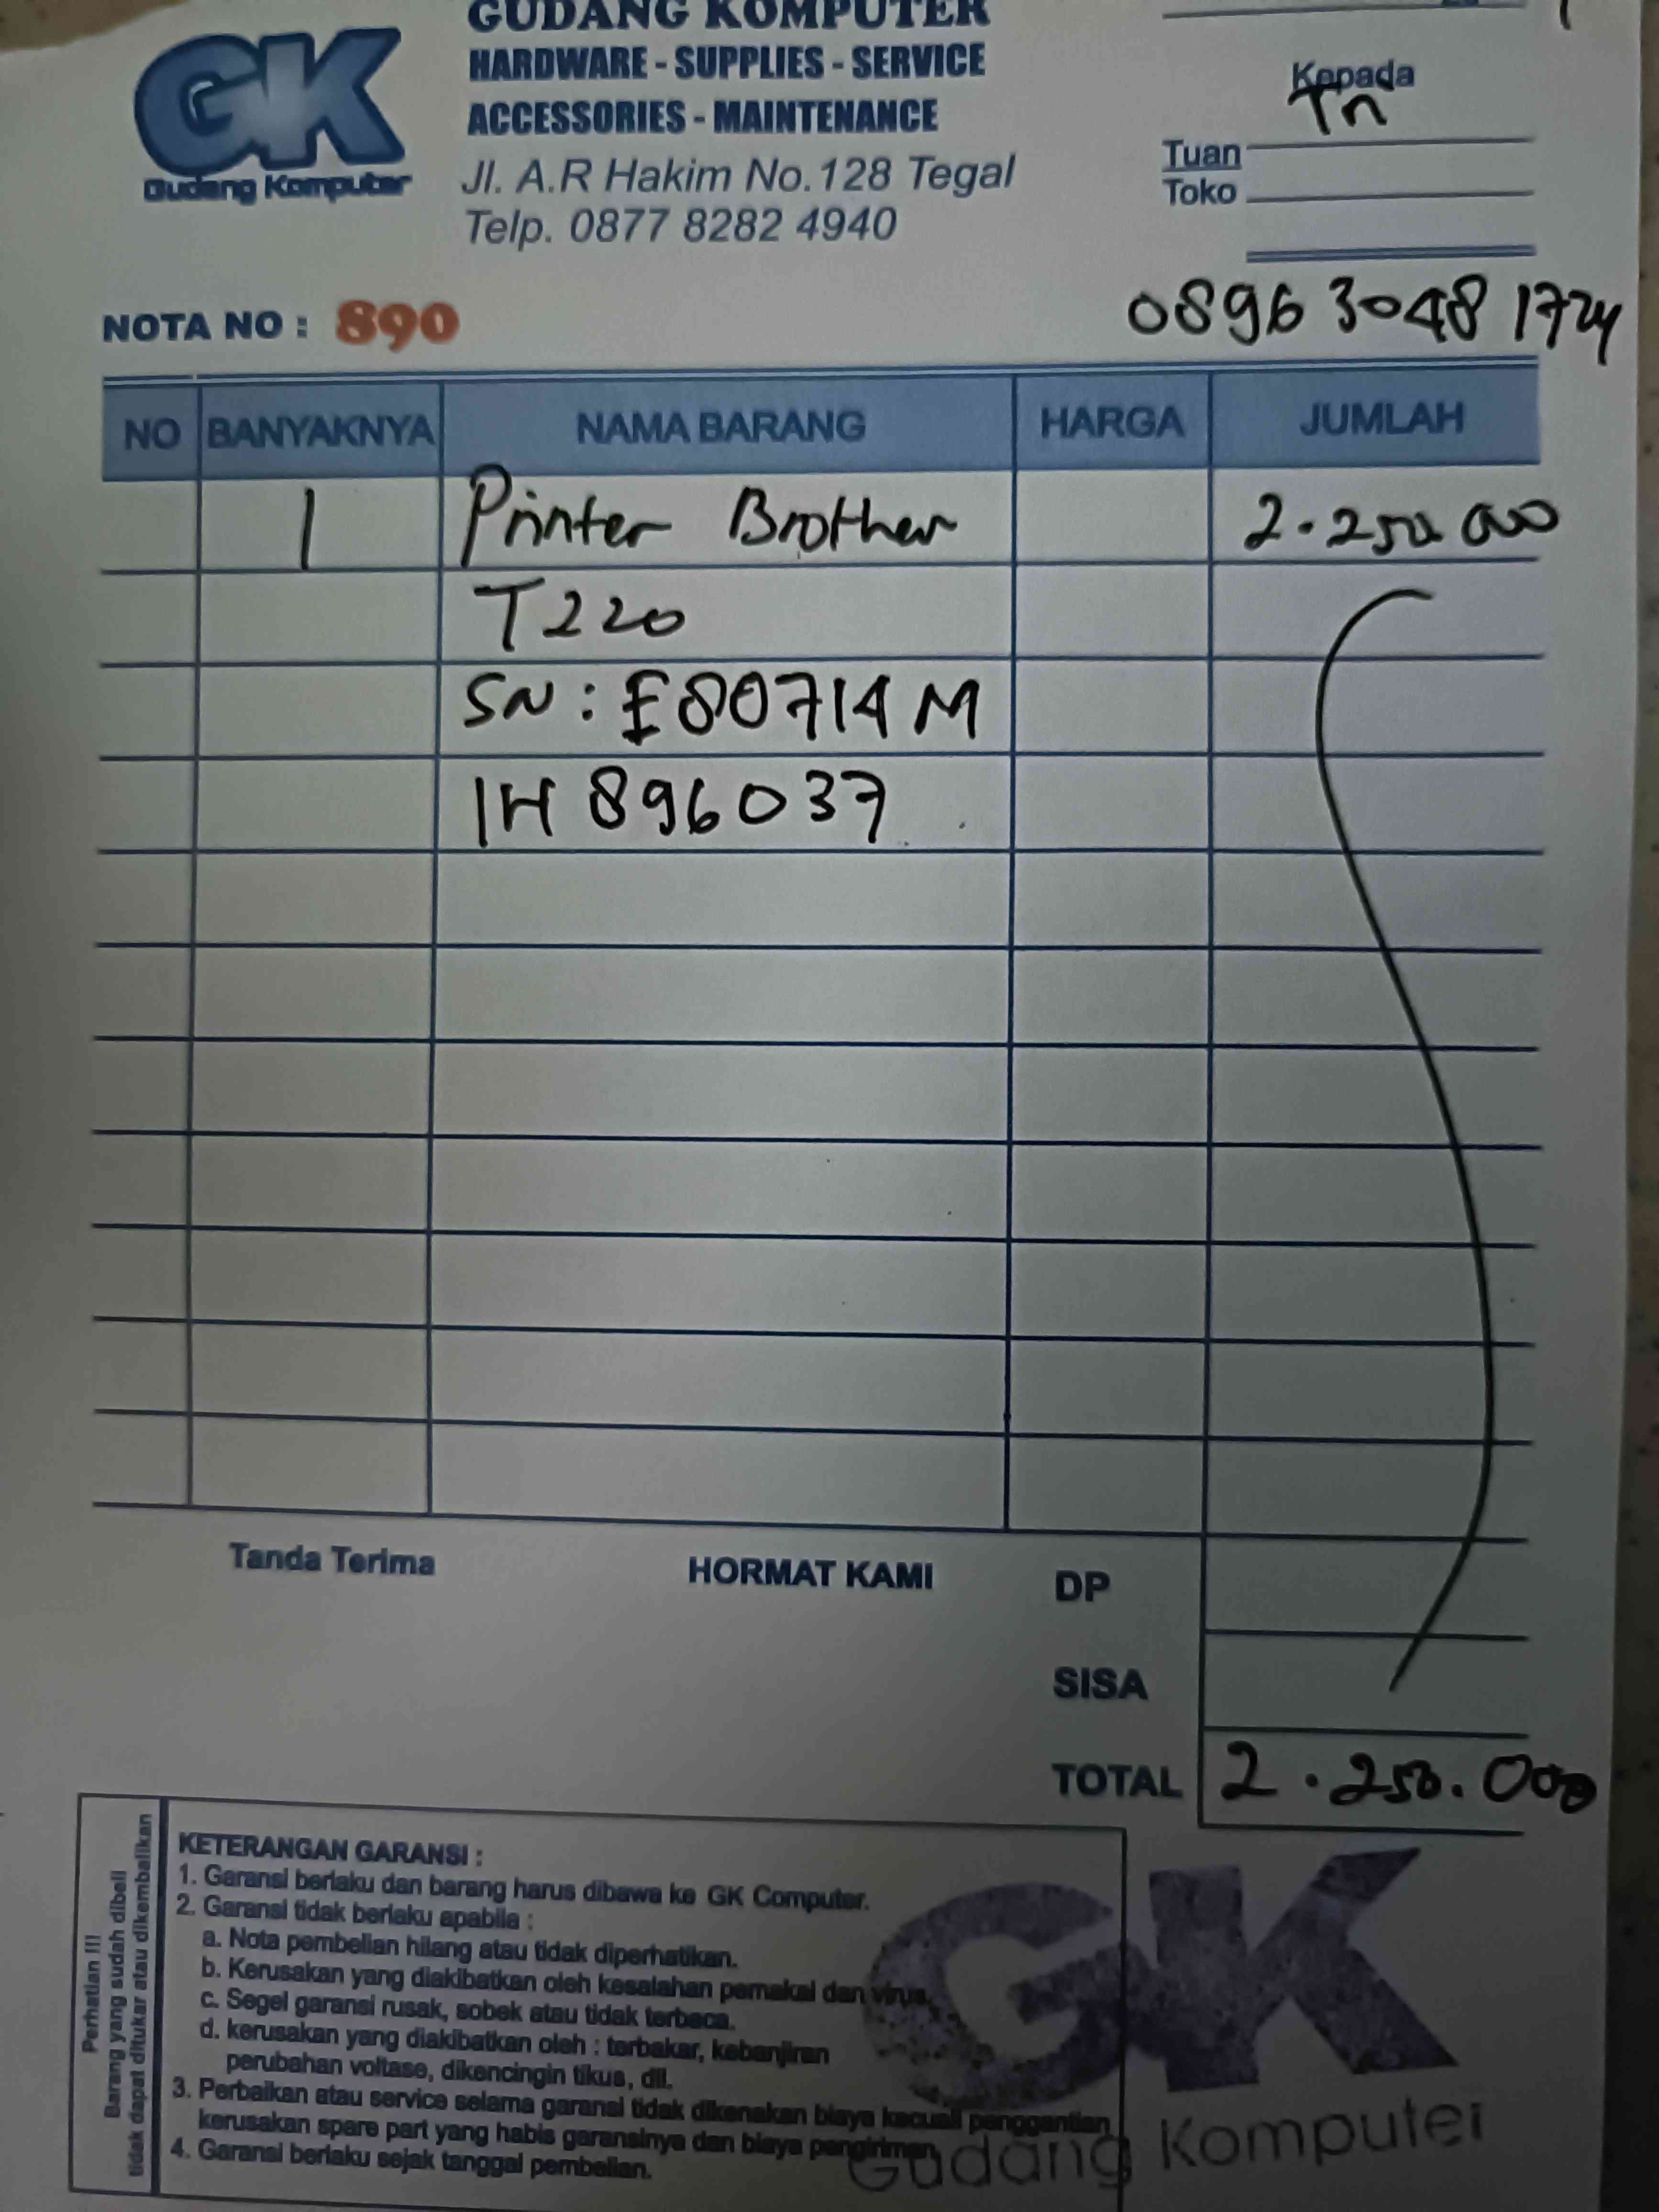 GUDANG KOMPUTER
HARDWARE - SUPPLIES - SERVICE
ACCESSORIES - MAINTENANCE
Jl. A.R Hakim No.128 Tegal
Telp. 0877 8282 4940
GK
Gudang Komputer
Kepada
Tn
Tuan
Toko
0896 3048 1724
NOTA NO : 890
NO BANYAKNYA NAMA BARANG HARGA JUMLAH
1 Printer Brother 2.250.000
T220
SN : E80714M
1H896037
Tanda Terima HORMAT KAMI DP
SISA
TOTAL 2.250.000
Perhatian !!!
Barang yang sudah dibeli
tidak dapat ditukar atau dikembalikan
KETERANGAN GARANSI :
1. Garansi berlaku dan barang harus dibawa ke GK Computer.
2. Garansi tidak berlaku apabila :
a. Nota pembelian hilang atau tidak diperhatikan.
b. Kerusakan yang diakibatkan oleh kesalahan pemakai dan virus.
c. Segel garansi rusak, sobek atau tidak terbaca.
d. kerusakan yang diakibatkan oleh : terbakar, kebanjiran
perubahan voltase, dikencingin tikus, dll.
3. Perbaikan atau service selama garansi tidak dikenakan biaya kecuali penggantian
kerusakan spare part yang habis garansinya dan biaya pengiriman.
4. Garansi berlaku sejak tanggal pembelian.
GK
Gudang Komputer